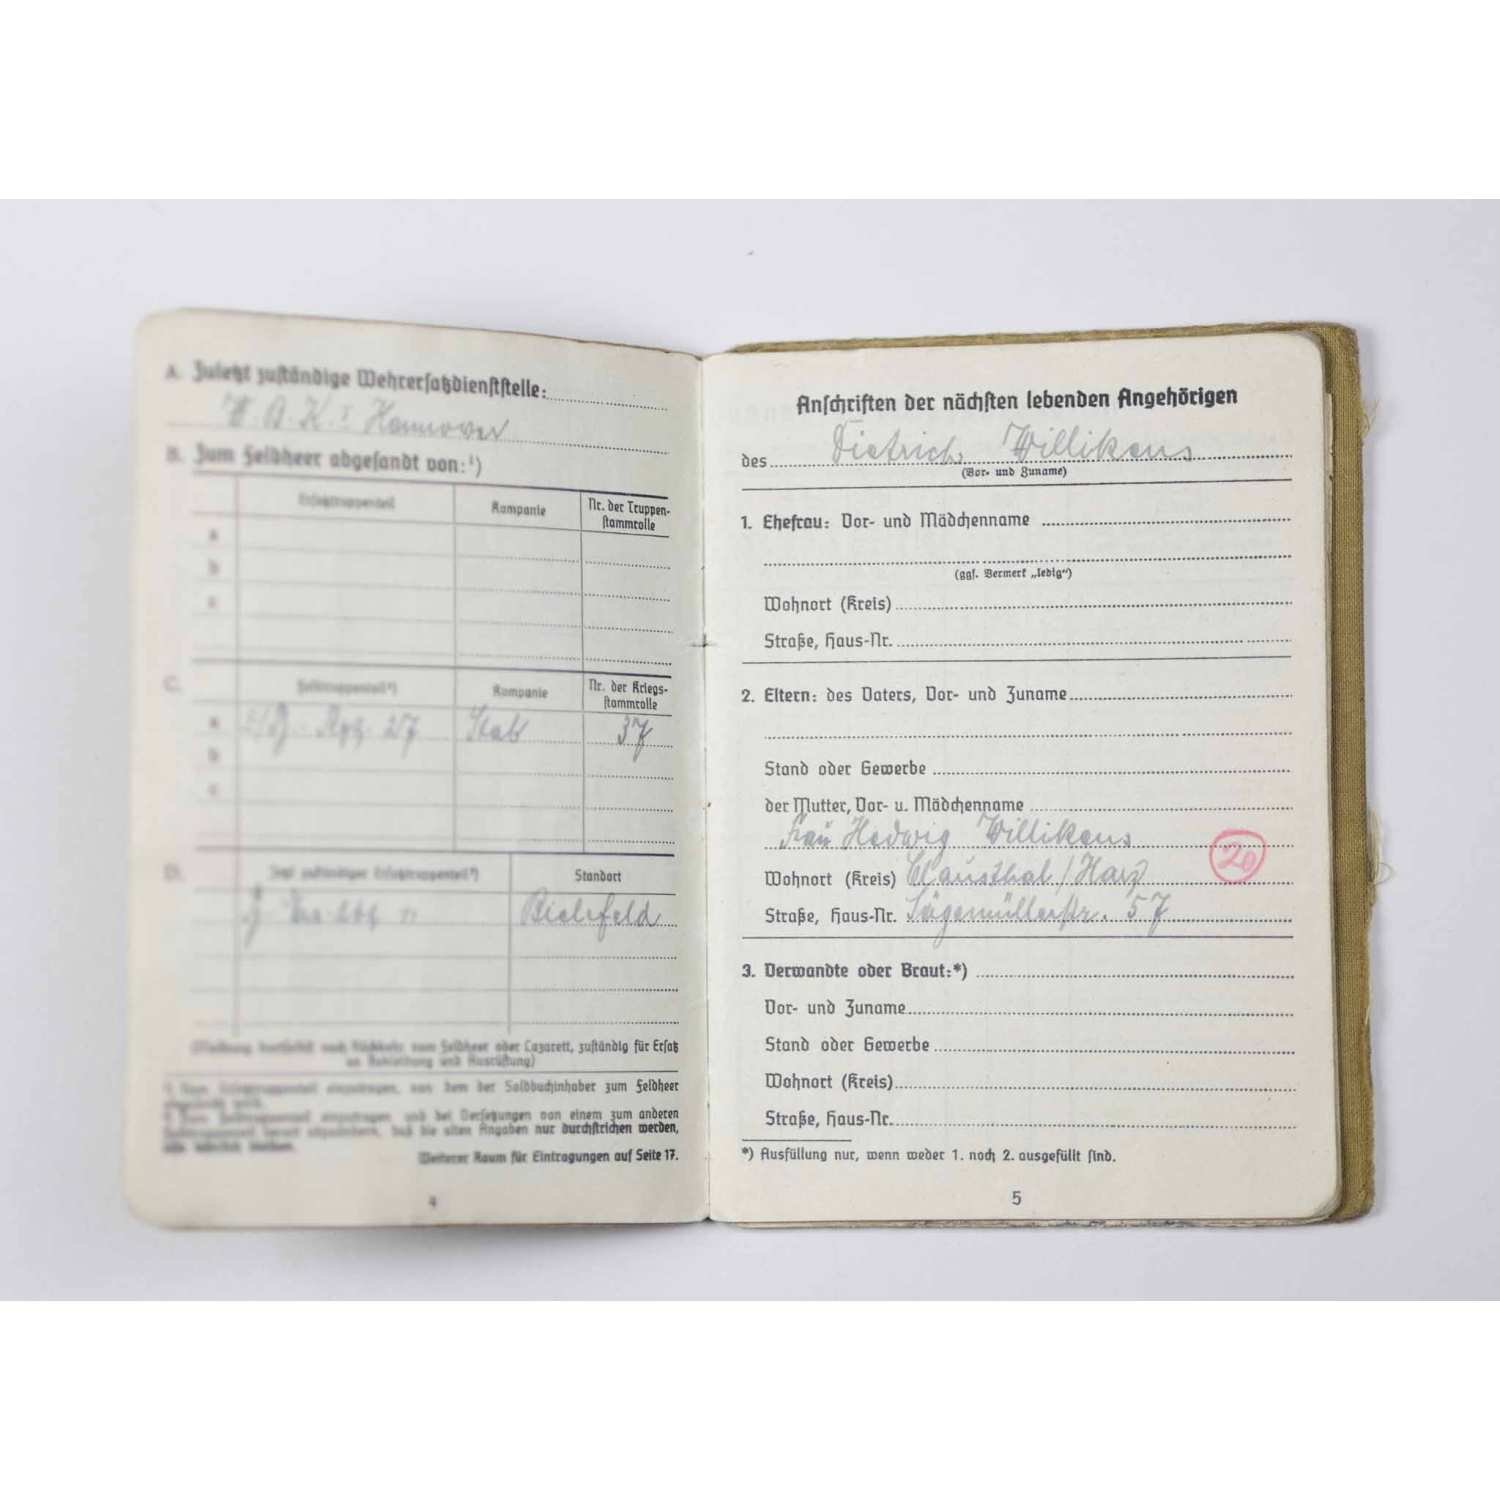 A. Zuletzt zuständige Wehrersatzdienststelle:
W. B. K. I Hannover
B. Zum Feldheer abgesandt von:¹)
Ersatztruppenteil Kompanie Nr. der Truppenstammrolle
a
b
c
C. Feldtruppenteil²) Kompanie Nr. der Kriegsstammrolle
a Rgt. 27 Stab 37
b
c
D. Jetzt zuständiger Ersatztruppenteil²) Standort
Bielefeld
(Meldung dortselbst nach Rückkehr vom Feldheer oder Lazarett, zuständig für Ersatz
an Bekleidung und Ausrüstung)
¹) Vom Ersatztruppenteil einzutragen, von dem der Soldbuchinhaber zum Feldheer
abgesandt wird.
²) Vom Feldtruppenteil einzutragen und bei Versetzungen von einem zum anderen
Feldtruppenteil derart abzuändern, daß die alten Angaben nur durchstrichen werden,
also leserlich bleiben.
Weiterer Raum für Eintragungen auf Seite 17.
4
Anschriften der nächsten lebenden Angehörigen
des Dietrich Willikens
(Vor- und Zuname)
1. Ehefrau: Vor- und Mädchenname
(ggf. Vermerk „ledig“)
Wohnort (Kreis)
Straße, Haus-Nr.
2. Eltern: des Vaters, Vor- und Zuname
Stand oder Gewerbe
der Mutter, Vor- u. Mädchenname
Frau Hedwig Willikens
20
Wohnort (Kreis) Clausthal / Harz
Straße, Haus-Nr. Sägemüllerstr. 57
3. Verwandte oder Braut:*)
Vor- und Zuname
Stand oder Gewerbe
Wohnort (Kreis)
Straße, Haus-Nr.
*) Ausfüllung nur, wenn weder 1. noch 2. ausgefüllt sind.
5